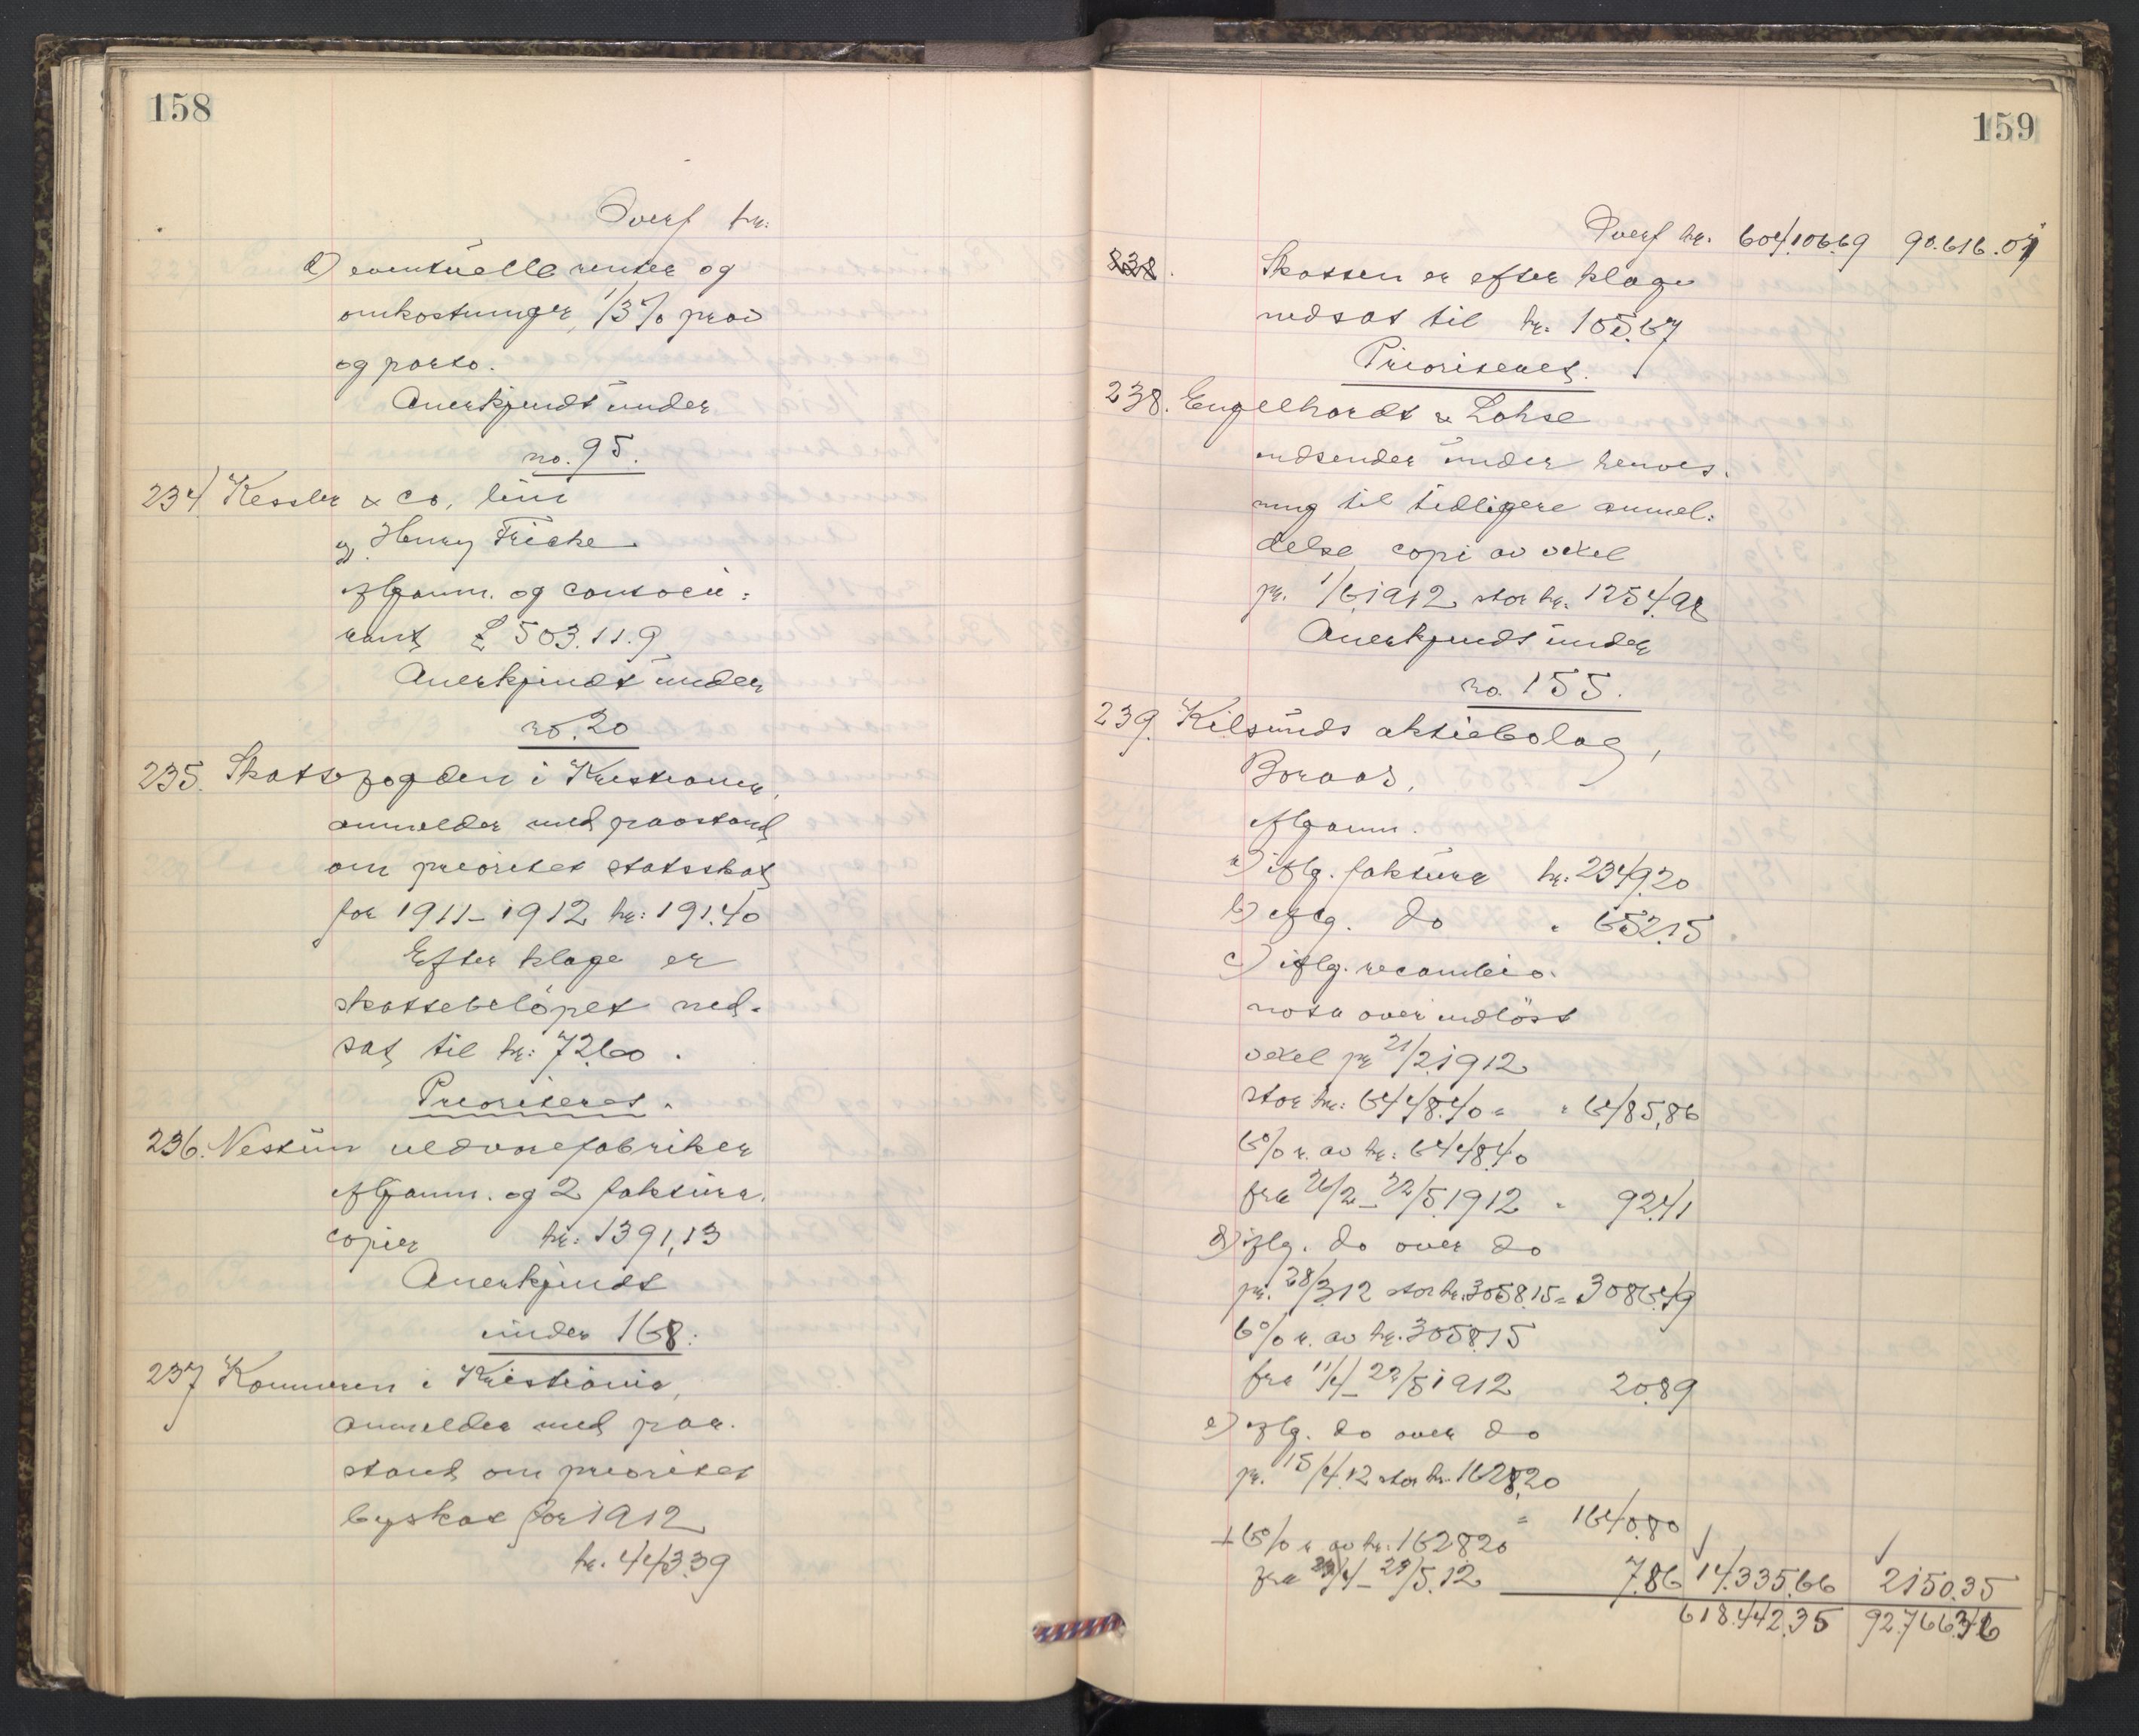 158
Overf kr.
d) eventuelle renter og
omkostninger, 1/3 % prov
og porto.
Anerkjendt under
no. 95.
234 Kessler & Co, lim
v/ Henry Fricke
ifl. anm. og contocu:
rant £ 503.11.9
Anerkjendt under
no. 20
235. Skattefogden i Kristiania,
anmelder med paastand
om prioritet statsskat
for 1911–1912 kr: 191.40
Efter klage er
skattebelöpet ned-
sat til kr: 72.60.
Prioriteret.
236. Nestun uldvarefabriker
ifl. anm. og 2 faktura.
copier kr: 1391,13
Anerkjendt
under 168.
237 Kommunen i Kristiania,
anmelder med paa-
stand om prioritet
byskat for 1912
kr. 443.39
159
Overf kr. 604.106.69 90.616.01
238.
Skatten er efter klage
nedsat til kr. 105.67
Prioriteret.
238. Engelhardt & Lohse
indsender under henvis-
ning til tidligere anmel:
delse copi av vexel
pr. 1/6 1912 stor kr. 1254.92
Anerkjendt under
no. 155.
239. Kilsunds aktiebolag,
Boraas,
ifl. anm.
a) iflg. faktura kr: 2349.20
b) iflg. do " 652.15
c) iflg. recambio-
nota over indlöst
vexel pr 21/2 1912
stor kr: 6448.40 = " 6485,86
6% r. av kr: 6448.40
fra 21/2 – 22/5 1912 " 92.41
d) iflg. do over do
pr. 28/3 12 stor kr. 3058.15 = 3086.49
6% r. av kr. 3058.15
fra 11/4 – 22/5 1912 20.89
e) iflg. do over do
pr. 15/4 12 stor kr. 1628,20
= 1640.80
+ 6% r av kr: 1628.20
fra 23/4 – 22/5.12 7.86 14.335.66 2150.35
618.442.35 92.766.36